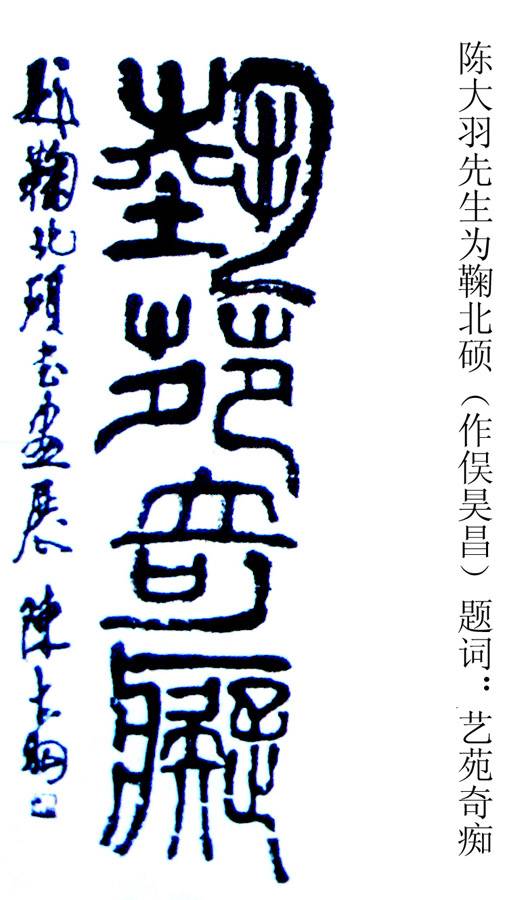 陈大羽先生为鞠北硕（作俣昊昌）题词：艺苑奇痴
埶苑奇癡
鞠北碩书畫展 陳大羽